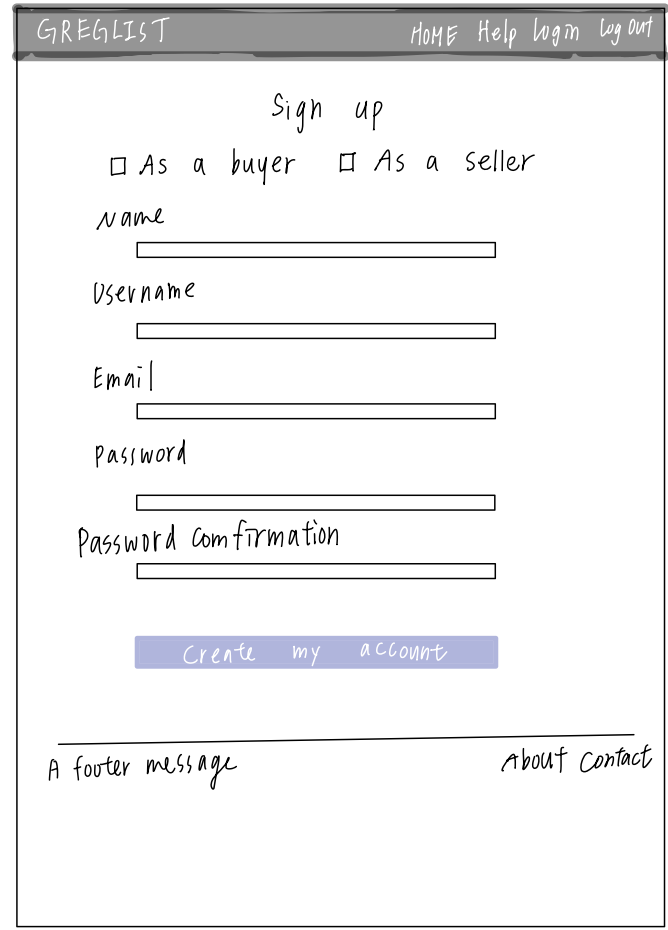 GREGLIST HOME Help Login Log Out
Sign up
As a buyer As a seller
Name
Username
Email
Password
Password comfirmation
Create my account
A footer message About Contact